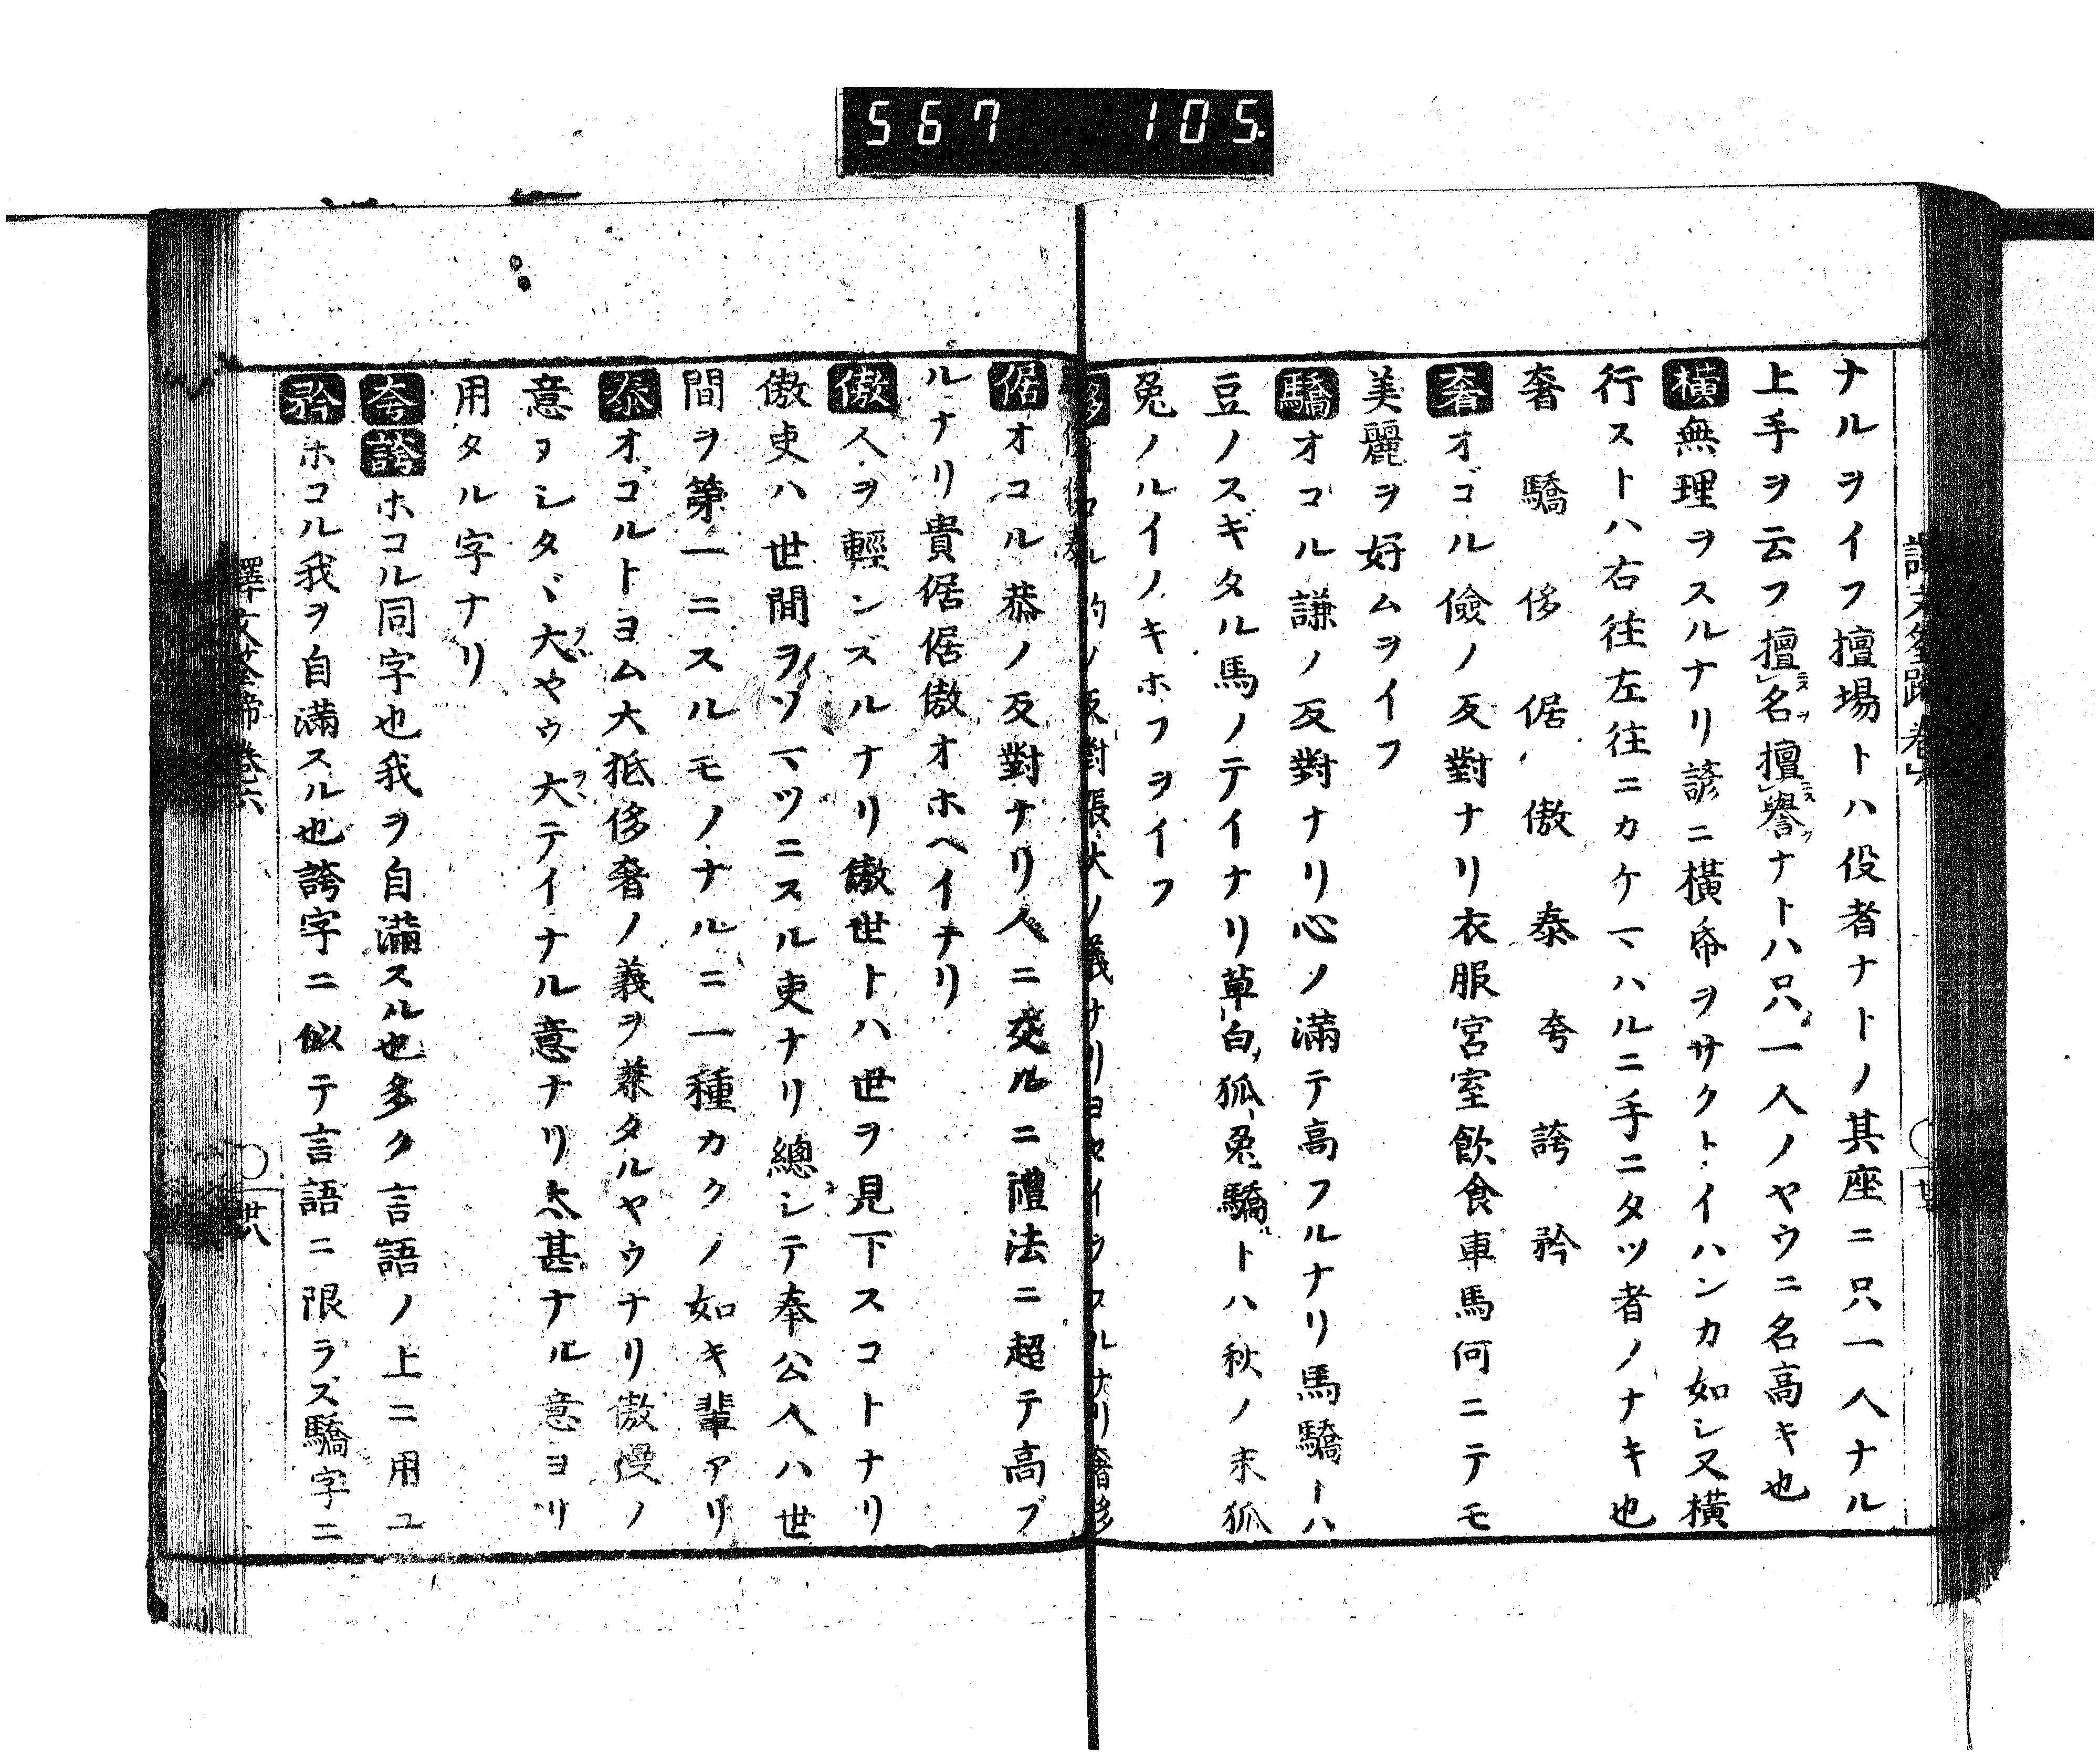 567 105.
ナルヲイフ擅場トハ役者ナトノ其座ニ只一人ナル
上手ヲ云フ擅名擅譽ナトハ只一人ノヤウニ名高キ也
橫無理ヲスルナリ諺ニ橫帋ヲサクトイハンカ如シ又橫
行ストハ右往左往ニカケマハルニ手ニタツ者ノナキ也
奢驕侈倨傲泰夸誇矜
奢オゴル儉ノ反對ナリ衣服宮室飮食車馬何ニテモ
美麗ヲ好ムヲイフ
驕オコル謙ノ反對ナリ心ノ滿テ高フルナリ馬驕トハ
豆ノスギタル馬ノテイナリ草白狐兔驕トハ秋ノ末狐
兔ノルイノキホフヲイフ
倨オコル恭ノ反對ナリ人ニ交ルニ禮法ニ超テ高ブ
ルナリ貴倨倨傲オホヘイナリ
傲人ヲ輕ンズルナリ傲世トハ世ヲ見下スコトナリ
傲吏ハ世間ヲソマツニスル吏ナリ總シテ奉公人ハ世
間ヲ第一ニスルモノナルニ一種カクノ如キ輩アリ
泰オゴルトヨム大抵侈奢ノ義ヲ蒹タルヤウナリ傲慢ノ
意ヲシタヾ大ヤウ大テイナル意ナリ太甚ナル意ヨリ
用タル字ナリ
夸誇ホコル同字也我ヲ自滿スル也多ク言語ノ上ニ用ユ
矜ホコル我ヲ自滿スル也誇字ニ似テ言語ニ限ラズ驕字ニ
譯文筌蹄卷六 廿八